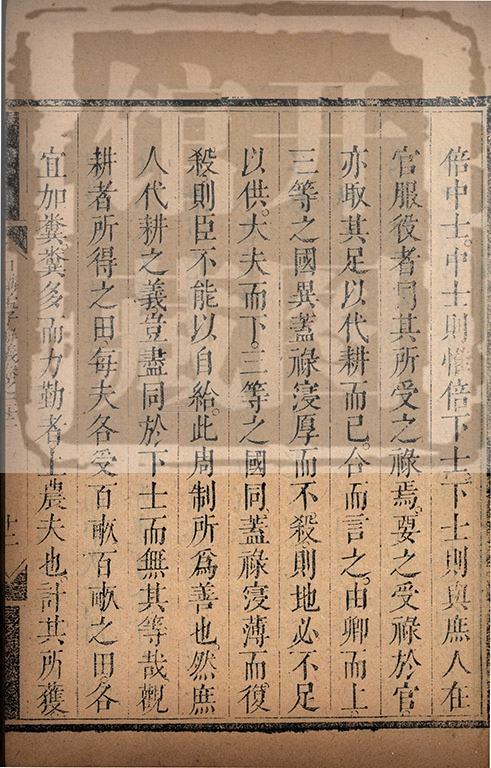 倍中士。中士則惟倍下士。下士則與庶人在
官服役者同其所受之祿焉。要之受祿於官。
亦取其足以代耕而已。合而言之。由卿而上。
三等之國異。蓋祿寖厚而不殺。則地必不足
以供。大夫而下。三等之國同。蓋祿寖薄而復
殺。則臣不能以自給。此周制所爲善也。然庶
人代耕之義。豈盡同於下士而無其等哉。觀
耕者所得之田。每夫各受百畝。百畝之田。各
宜加糞。糞多而力勤者。上農夫也。計其所獲
十二